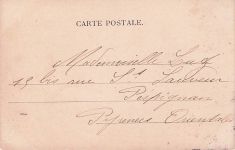 CARTE POSTALE.
Mademoiselle
15 bis rue St Sauveur
Perpignan
Pyrénées Orientales